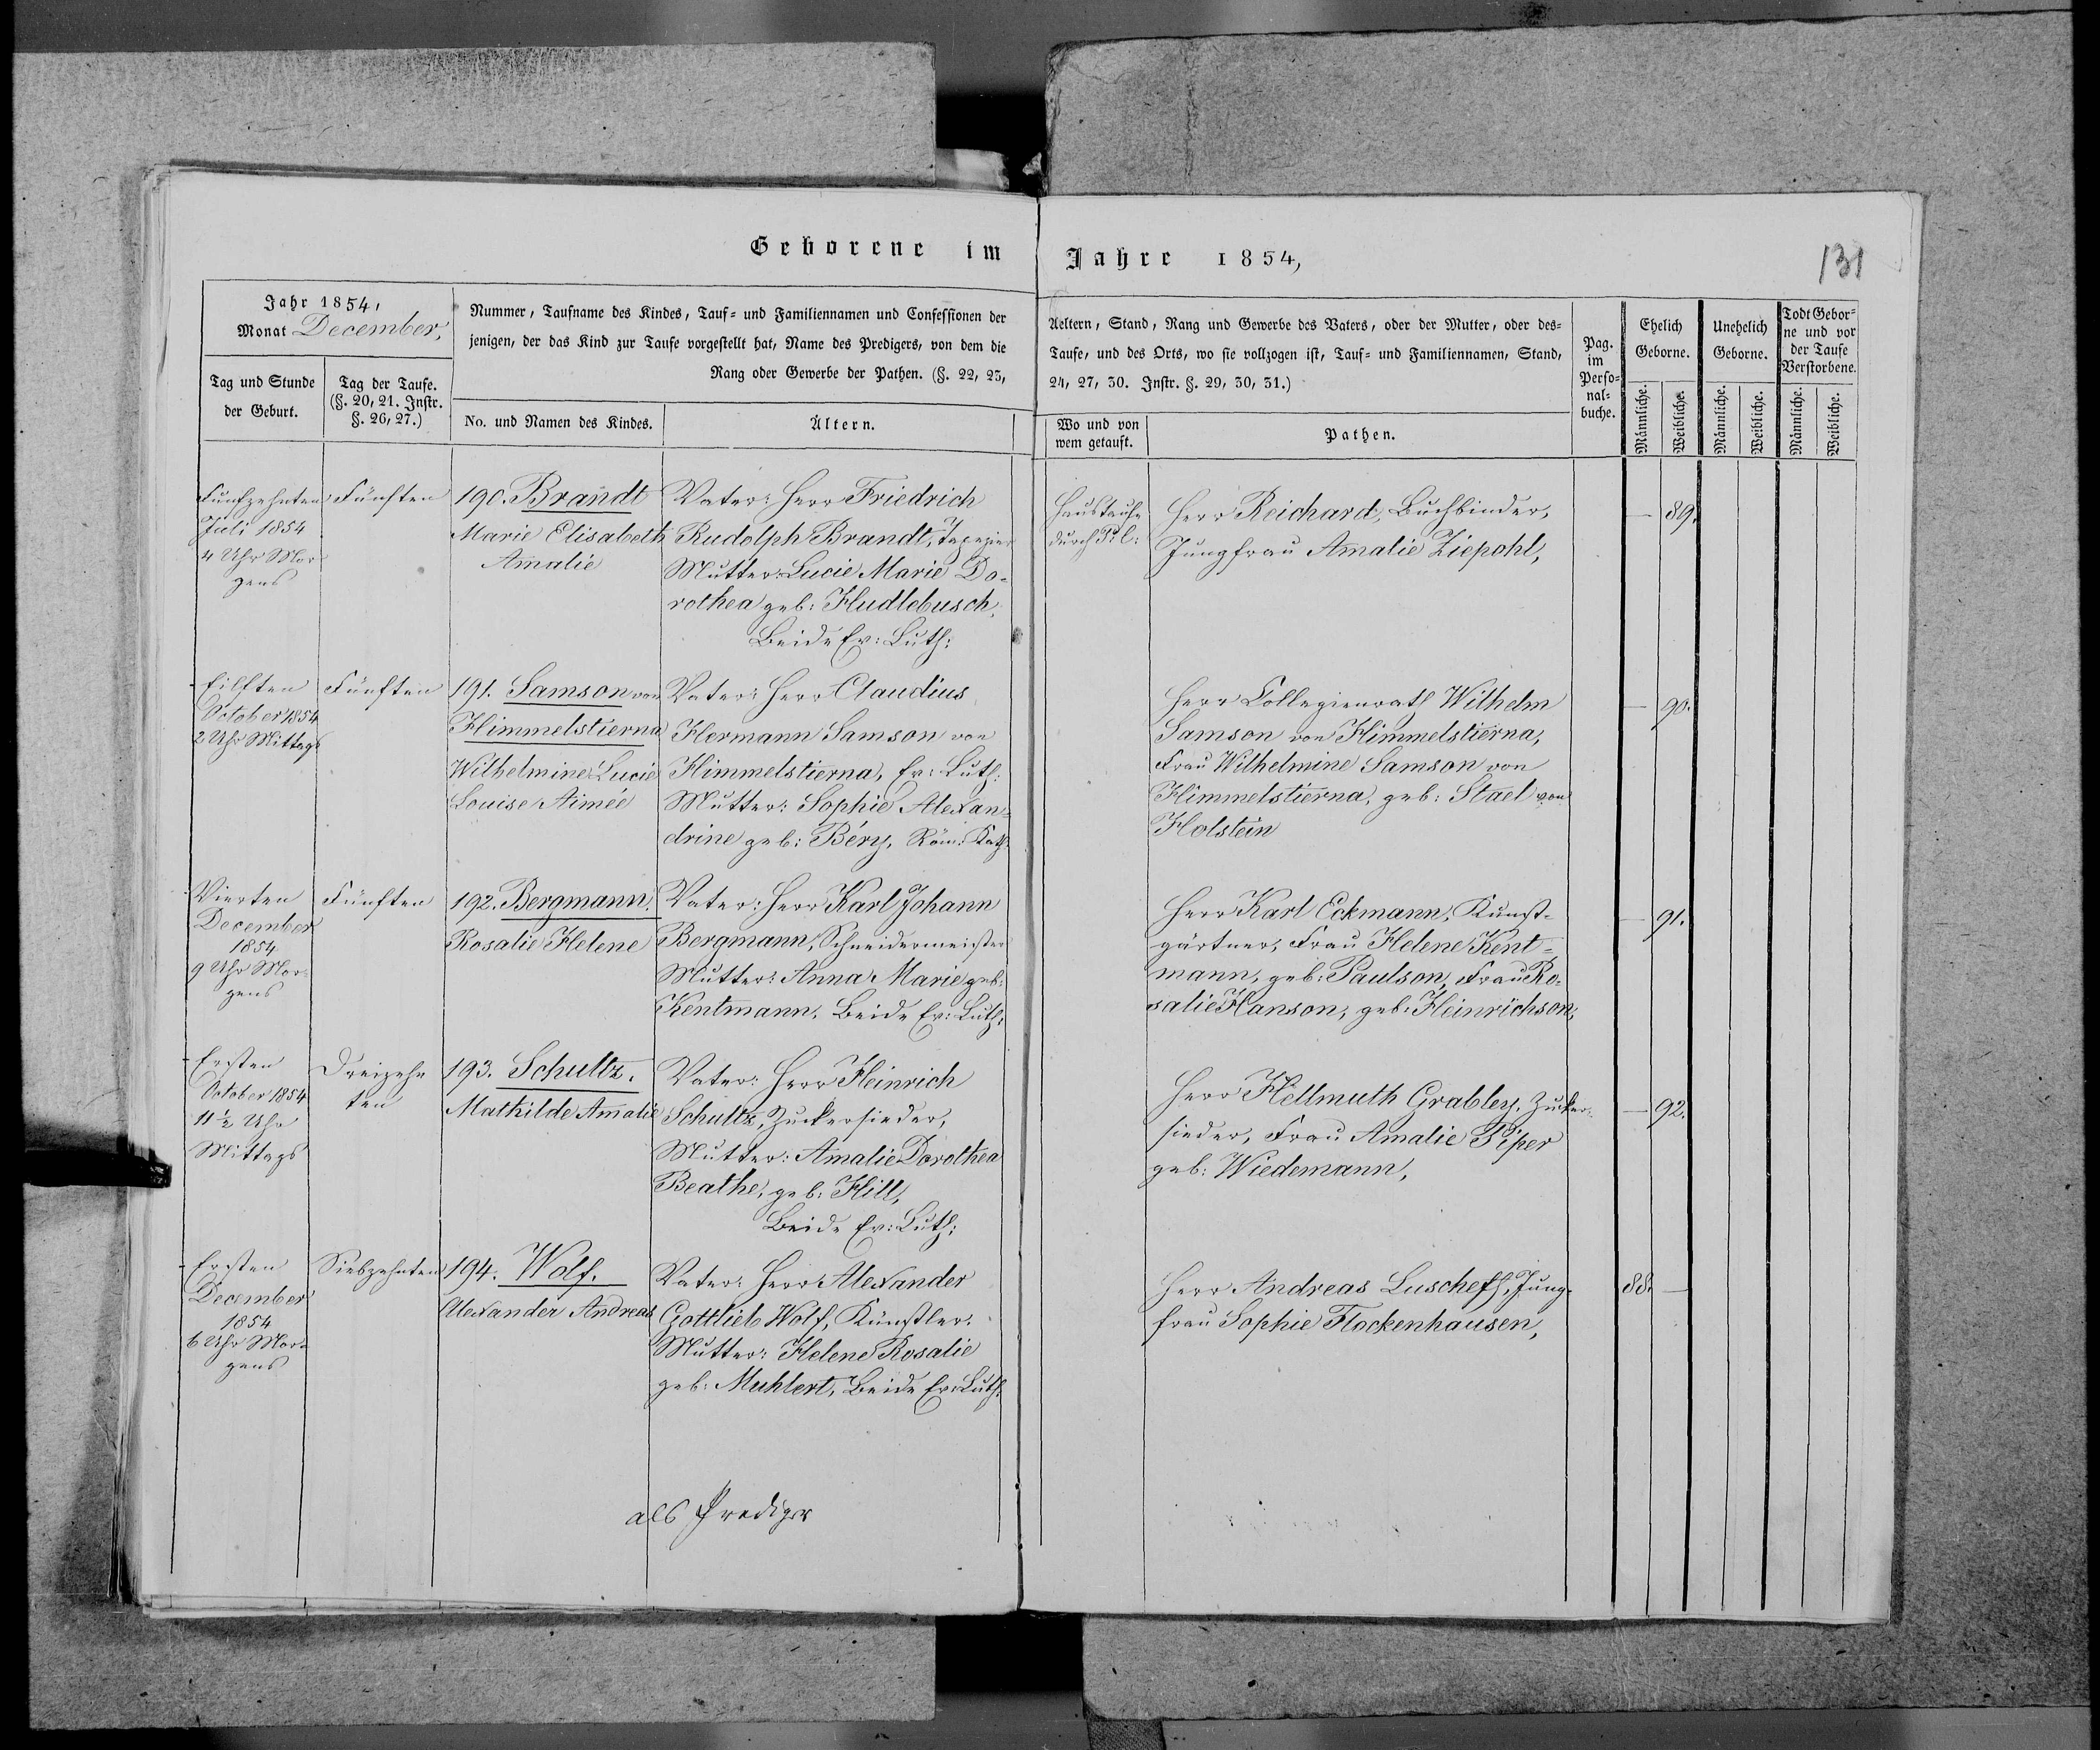 Geborene im Jahre 1854,
131
Jahr 1854,
Monat December,
Tag und Stunde
der Geburt.
Tag der Taufe.
(§. 20, 21. Instr.
§. 26, 27.)
Nummer, Taufname des Kindes, Tauf- und Familiennamen und Confessionen der
jenigen, der das Kind zur Taufe vorgestellt hat, Name des Predigers, von dem die
Rang oder Gewerbe der Pathen. (§. 22, 23,
No. und Namen des Kindes.
Ältern.
Aeltern, Stand, Rang und Gewerbe des Vaters, oder der Mutter, oder des-
Taufe, und des Orts, wo sie vollzogen ist, Tauf- und Familiennamen, Stand,
24, 27, 30. Instr. §. 29, 30, 31.)
Wo und von
wem getauft.
Pathen.
Pag.
im
Perso-
nal-
buche.
Ehelich
Geborne.
Männliche.
Weibliche.
Unehelich
Geborne.
Männliche.
Weibliche.
Todt Gebor-
ne und vor
der Taufe
Verstorbene.
Männliche.
Weibliche.
Funfzehnten
Juli 1854
4 Uhr Mor-
gens
Fünften
190. Brandt
Marie Elisabeth
Amalie
Vater: Herr Friedrich
Rudolph Brandt, Tapezier
Mutter: Lucie Marie Do-
rothea geb: Hudlebusch,
Beide Ev: Luth:
Haustaufe
durch P: C:
Herr Reichard, Buchbinder,
Jungfrau Amalie Ziepohl,
— 89.
Eilften
October 1854
2 Uhr Mittags
Fünften
191. Samson von
Himmelstierna
Wilhelmine Lucie
Louise Aimée
Vater: Herr Claudius
Hermann Samson von
Himmelstierna, Ev: Luth:
Mutter: Sophie Alexan-
drine geb: Béry, Röm: Kath:
Herr Collegienrath Wilhelm
Samson von Himmelstierna,
Frau Wilhelmine Samson von
Himmelstierna, geb: Stael von
Holstein
— 90.
Vierten
December
1854
9 Uhr Mor-
gens
Fünften
192. Bergmann.
Rosalie Helene
Vater: Herr Karl Johann
Bergmann, Schneidermeister
Mutter: Anna Marie geb:
Kentmann. Beide Ev: Luth:
Herr Karl Eckmann, Kunst-
gärtner, Frau Helene Kent-
mann, geb: Paulson, Frau Ro-
salie Hanson, geb: Heinrichson,
— 91.
Ersten
October 1854
11 ½ Uhr
Mittags
Dreizehn
ten
193. Schultz.
Mathilde Amalie
Vater: Herr Heinrich
Schultz, Zuckersieder,
Mutter: Amalie Dorothea
Beathe, geb: Hill,
Beide Ev: Luth:
Herr Hellmuth Grabley, Zucker-
sieder, Frau Amalie Piper
geb: Wiedemann,
— 92.
Ersten
December
1854
6 Uhr Mor-
gens
Siebzehnten
194. Wolf.
Alexander Andreas
Vater: Herr Alexander
Gottlieb Wolf, Künstler.
Mutter: Helene Rosalie
geb: Muhlert, Beide Ev: Luth:
Herr Andreas Luscheff, Jung-
frau Sophie Flockenhausen,
88. —
als Prediger